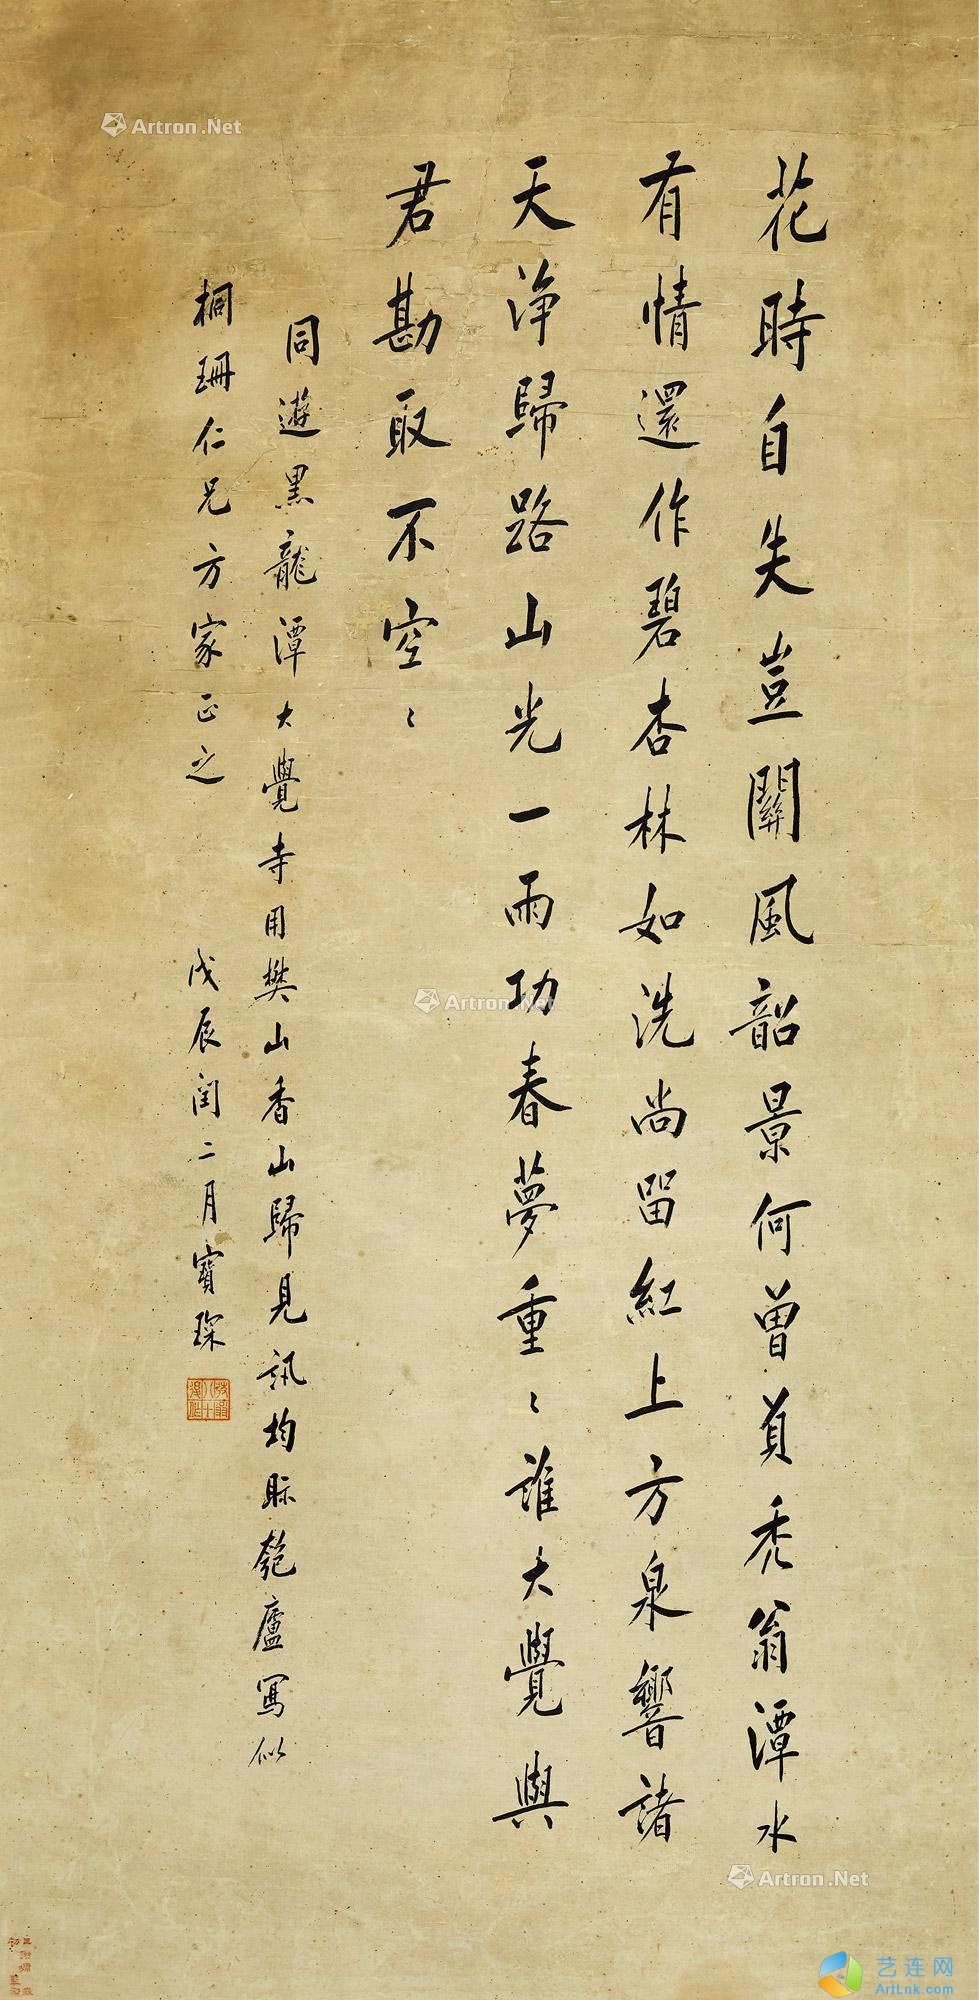 花時自失豈關風韶景何曾負禿翁潭水
有情還作碧杏林如洗尚留紅上方泉響諸
天淨歸路山光一雨功春夢重〻誰大覺與
君勘取不空〻
同遊黑龍潭大覺寺用樊山香山歸見訊均眎匏廬寫似
桐珊仁兄方家正之 戊辰閏二月寶琛
Artron.Net
Artron.Net
Artron.Net
艺连网
ArtLnk.com